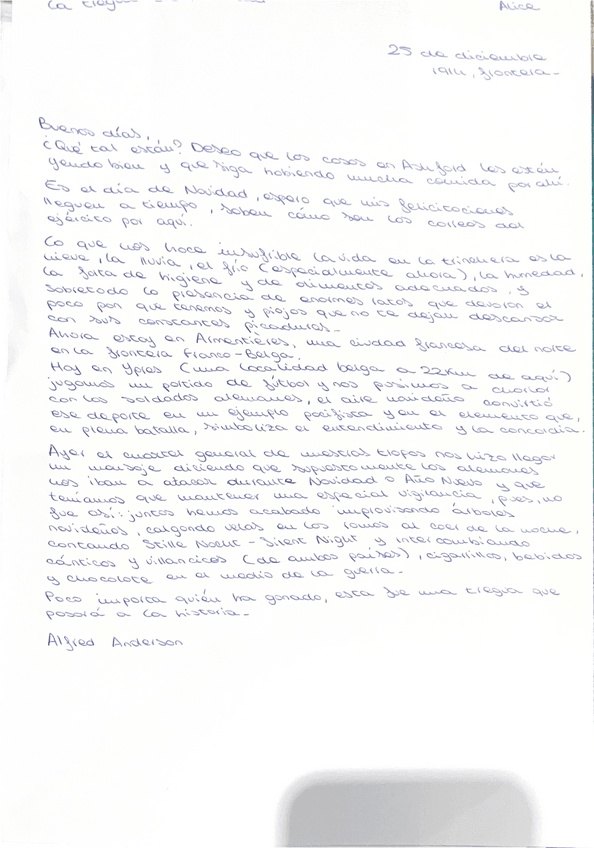 La tregua Alice
25 de diciembre
1914, frontera.
Buenos días,
¿Qué tal están? Deseo que las cosas en Ashford les estén
yendo bien y que siga habiendo mucha comida por ahí.
Es el día de Navidad, espero que mis felicitaciones
lleguen a tiempo, saben cómo son los correos del
ejército por aquí.
Lo que nos hace insufrible la vida en la trinchera es la
nieve, la lluvia, el frío (especialmente ahora), la humedad,
la falta de higiene y de alimentos adecuados, y
sobretodo la presencia de enormes ratas que devoran el
poco pan que tenemos y piojos que no te dejan descansar
con sus constantes picaduras.
Ahora estoy en Armentières, una ciudad francesa del norte
en la frontera Franco-Belga.
Hoy en Ypres (una localidad belga a 22km de aquí)
jugamos un partido de fútbol y nos pusimos a charlar
con los soldados alemanes, el aire navideño convirtió
ese deporte en un ejemplo pacifista y en el elemento que,
en plena batalla, simboliza el entendimiento y la concordia.
Ayer el cuartel general de nuestras tropas nos hizo llegar
un mensaje diciendo que supuestamente los alemanes
nos iban a atacar durante Navidad o Año Nuevo y que
teníamos que mantener una especial vigilancia, pues, no
fue así: juntos hemos acabado improvisando árboles
navideños, colgando velas en las ramas al caer de la noche,
cantando Stille Nacht - Silent Night y intercambiando
cánticos y villancicos (de ambos países), cigarrillos, bebidas
y chocolate en el medio de la guerra.
Poco importa quién ha ganado, esta fue una tregua que
pasará a la historia.
Alfred Anderson